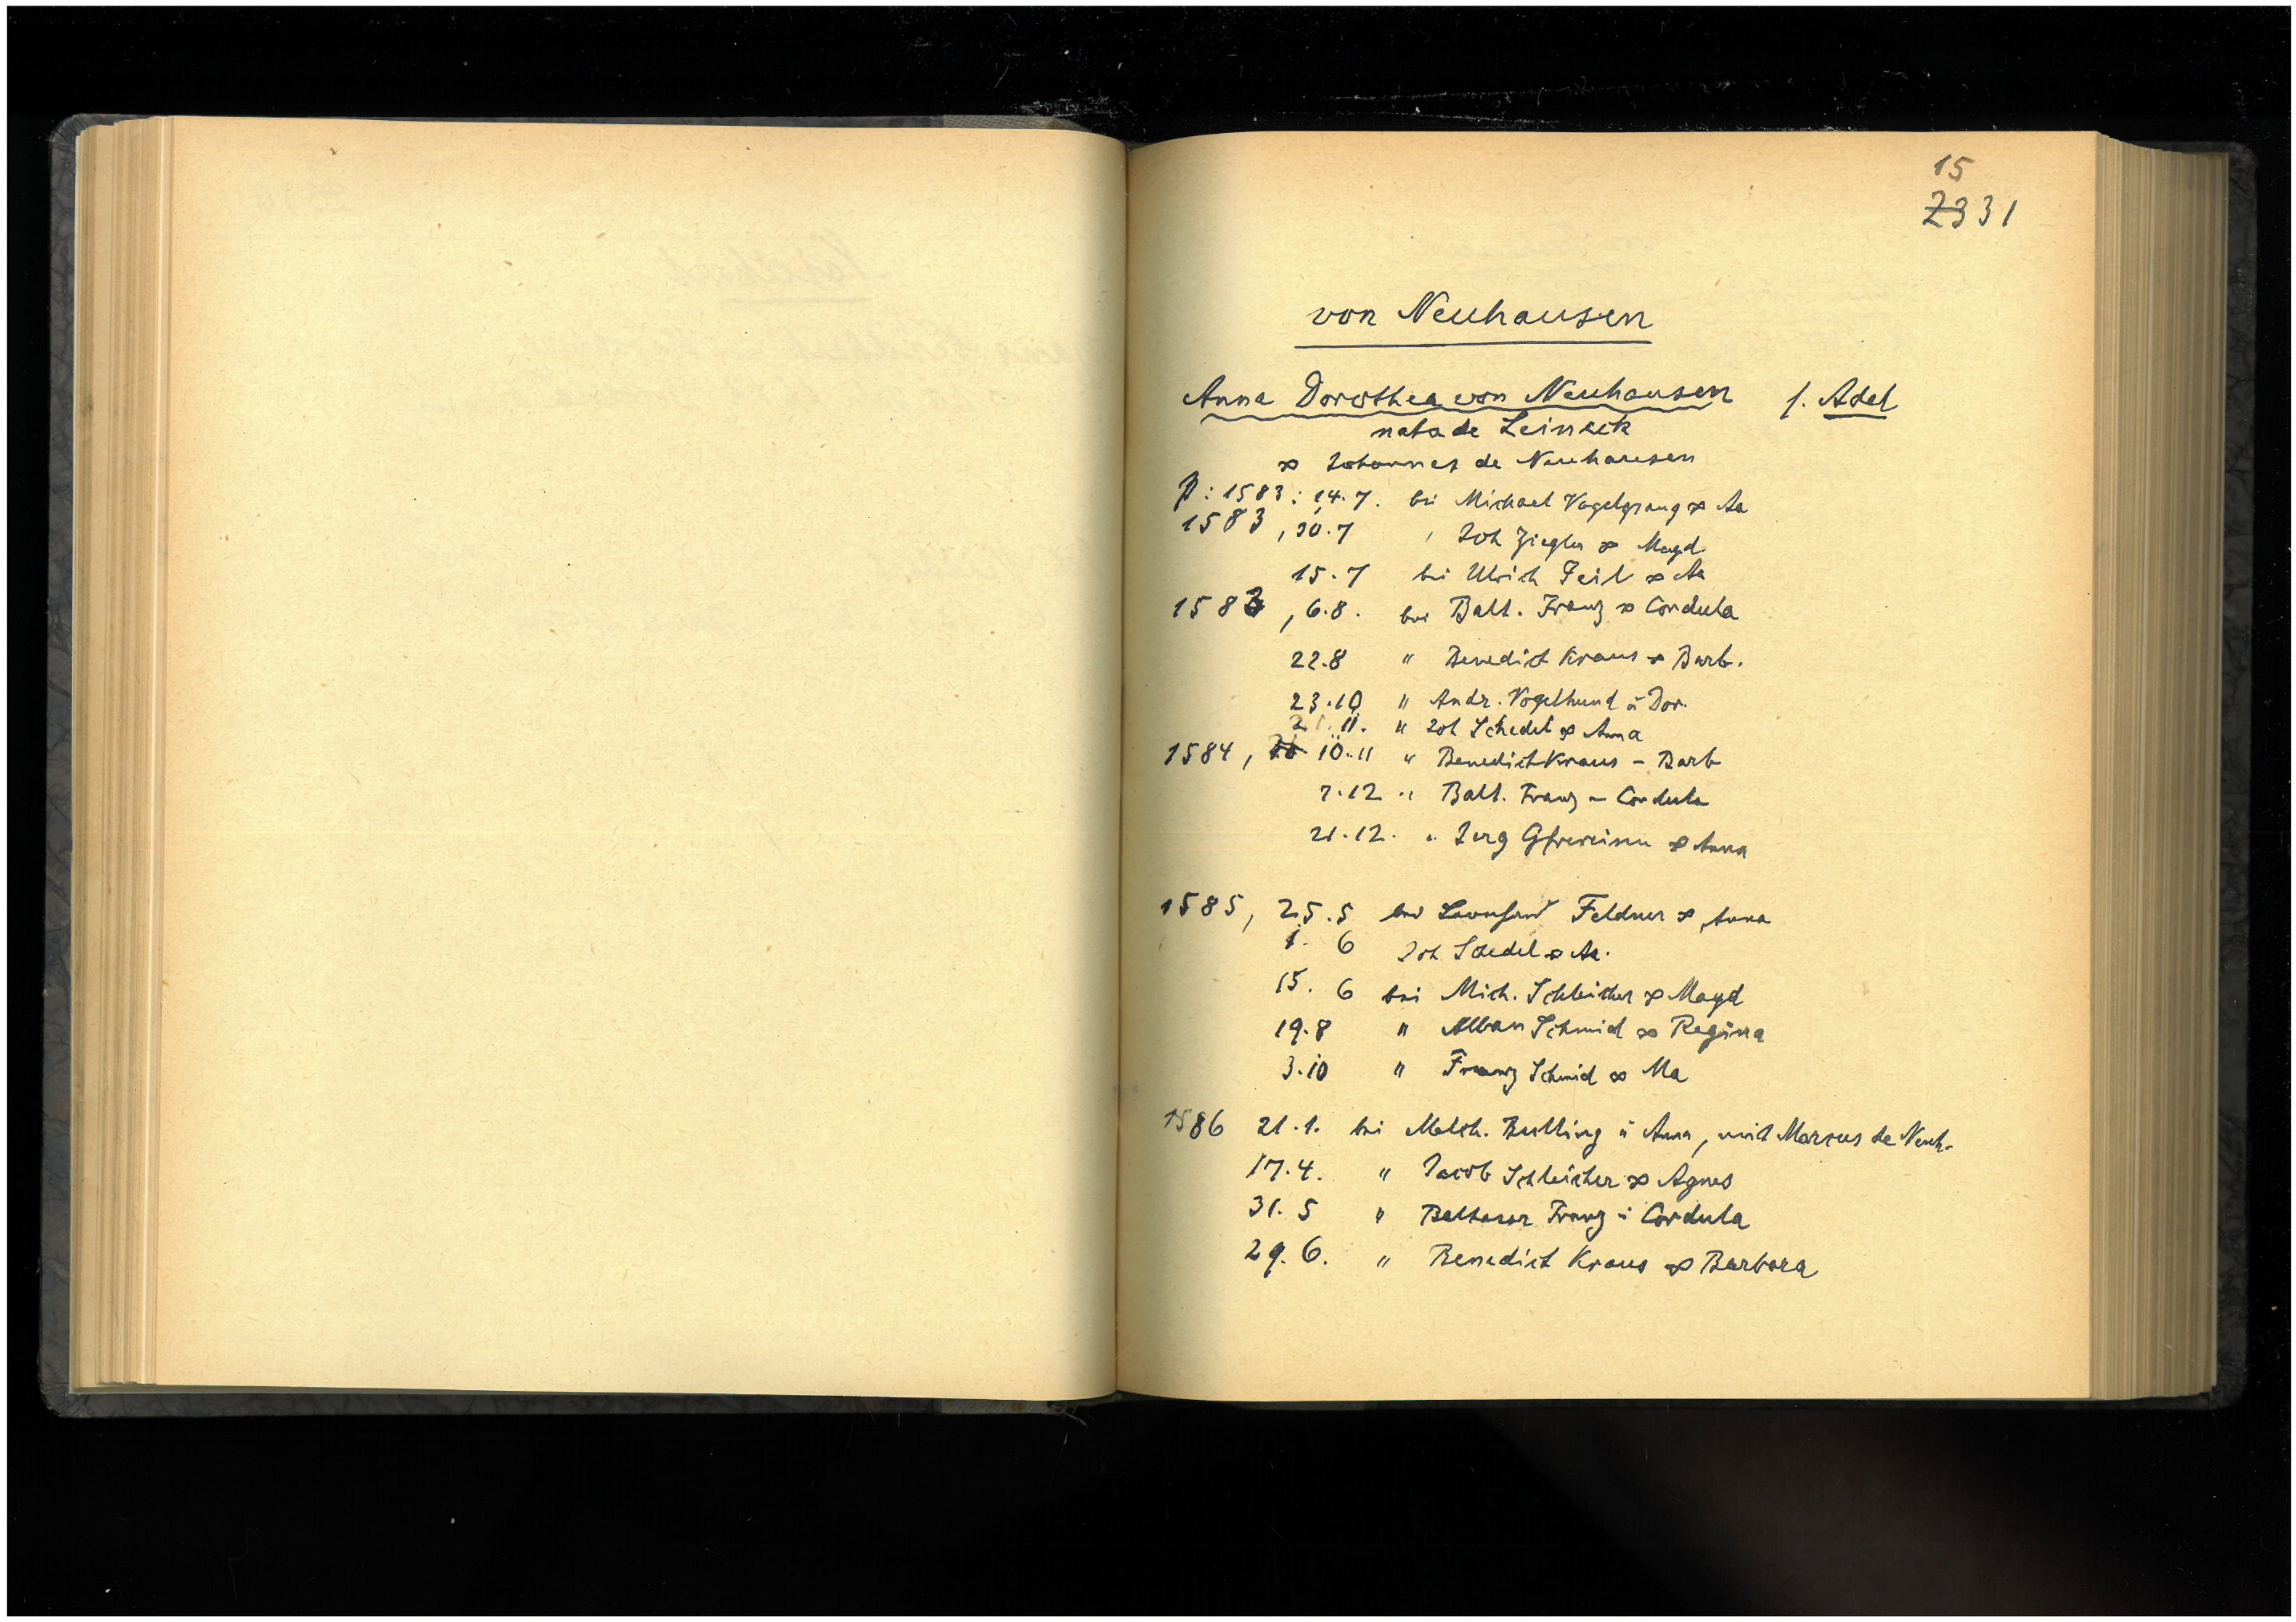 15
Z3 31
von Neuhausen
Anna Dorothea von Neuhausen s. Adel
nata de Leineck
∞ Johannes de Neuhausen
P: 1583: 14.7. bei Michael Vogelgsang ∞ Aa
1583, 30.7 " Joh Ziegler ∞ Magd
15.7 bei Ulrich Feil ∞ Aa
1583, 6.8. bei Balt. Franz ∞ Cordula
22.8 " Benedict Kraus ∞ Barb.
23.10 " Andr. Vogelhund u Dor.
21.11. " Joh Schedel ∞ Anna
1584, 10.11 " Benedict Kraus - Barb
7.12 " Balt. Franz - Cordula
21.12. " Jerg ∞ Anna
1585, 25.5 bei Leonhard Feldner ∞ Anna
1. 6 Joh Schedel ∞ Aa.
15. 6 bei Mich. Schleicher ∞ Magd
19.8 " Alban Schmid ∞ Regina
3.10 " Franz Schmid ∞ Ma
1586 21.1. bei Melch. Bulling u Anna, mit Marcus de Neuh.
17.4. " Jacob Schleicher ∞ Agnes
31. 5 " Balthasar Franz u Cordula
29. 6. " Benedict Kraus ∞ Barbara